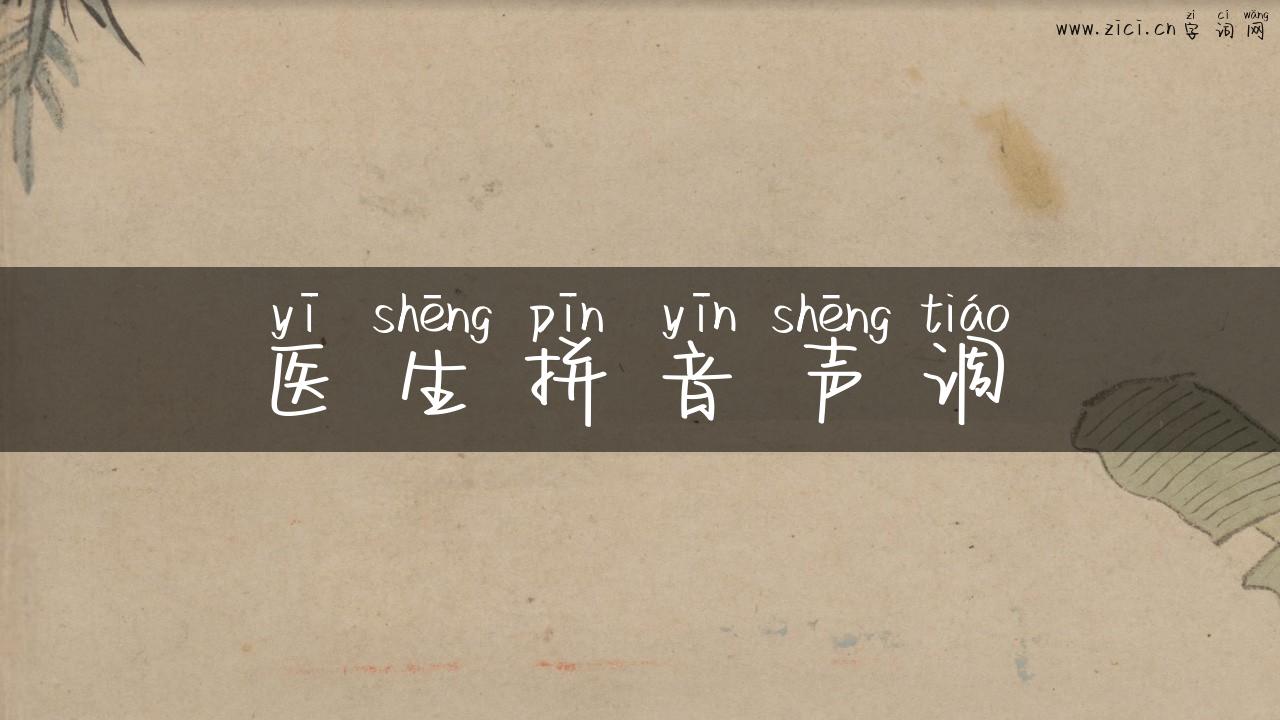 zì cí wǎng
www.zici.cn 字 词 网
yī shēng pīn yīn shēng tiáo
医 生 拼 音 声 调